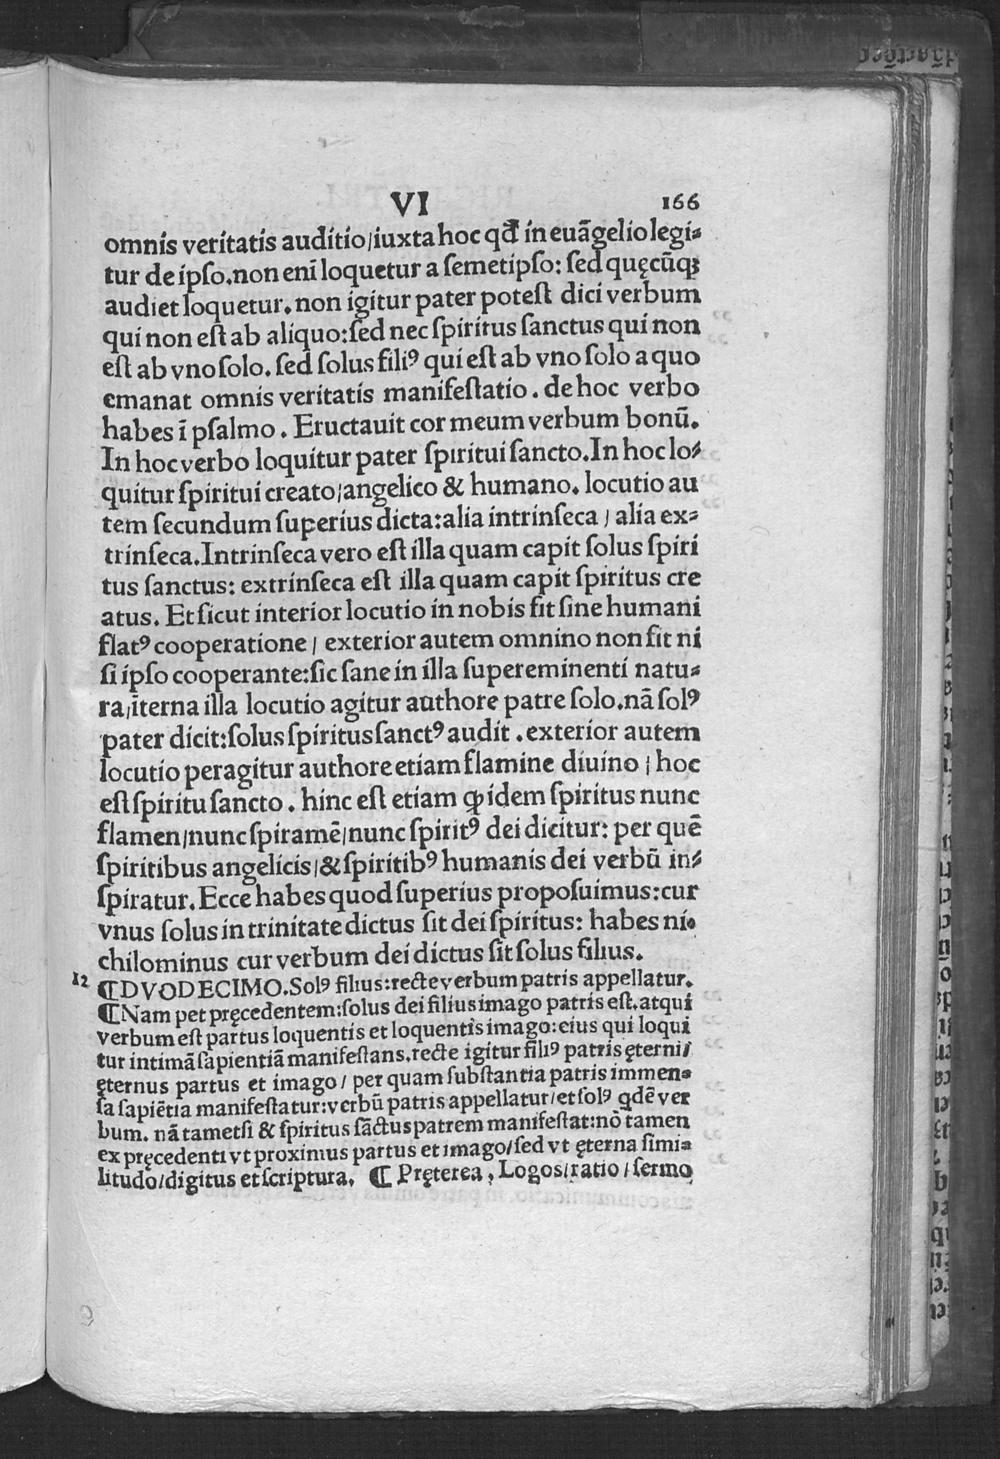 VI 166
omnis veritatis auditio/iuxta hoc qđ in euãgelio legi⸗
tur de ipso. non eni̅ loquetur a semetipso: sed quęcũqꝫ
audiet loquetur. non igitur pater potest dici verbum
qui non est ab aliquo: sed nec spiritus sanctus qui non
est ab vno solo. sed solus filiꝰ qui est ab vno solo a quo
emanat omnis veritatis manifestatio. de hoc verbo
habes i̅ psalmo. Eructauit cor meum verbum bonũ.
In hoc verbo loquitur pater spiritui sancto. In hoc lo⸗
quitur spiritui creato/angelico & humano. locutio au
tem secundum superius dicta: alia intrinseca / alia ex⸗
trinseca. Intrinseca vero est illa quam capit solus spiri
tus sanctus: extrinseca est illa quam capit spiritus cre
atus. Et sicut interior locutio in nobis fit sine humani
flatꝰ cooperatione / exterior autem omnino non fit ni
si ipso cooperante: sic sane in illa supereminenti natu⸗
ra/i̅terna illa locutio agitur authore patre solo. nã solꝰ
pater dicit: solus spiritus sanctꝰ audit. exterior autem
locutio peragitur authore etiam flamine diuino / hoc
est spiritu sancto. hinc est etiam ꝙ idem spiritus nunc
flamen/nunc spiramẽ/nunc spiritꝰ dei dicitur: per quẽ
spiritibus angelicis/& spiritibꝰ humanis dei verbũ in⸗
spiratur. Ecce habes quod superius proposuimus: cur
vnus solus in trinitate dictus sit dei spiritus: habes ni⸗
chilominus cur verbum dei dictus sit solus filius.
12 ¶DVODECIMO. Solꝰ filius: recte verbum patris appellatur.
¶Nam pet pręcedentem: solus dei filius imago patris est. atqui
verbum est partus loquentis et loquentis imago: eius qui loqui
tur intimã sapientiã manifestans. recte igitur filiꝰ patris ęterni/
ęternus partus et imago / per quam substantia patris immen⸗
sa sapiẽtia manifestatur: verbũ patris appellatur/et solꝰ qdẽ ver
bum. nã tametsi & spiritus sãctus patrem manifestat: nõ tamen
ex pręcedenti vt proximus partus et imago/sed vt ęterna simi⸗
litudo/digitus et scriptura. ¶ Pręterea, Logos/ratio / sermo